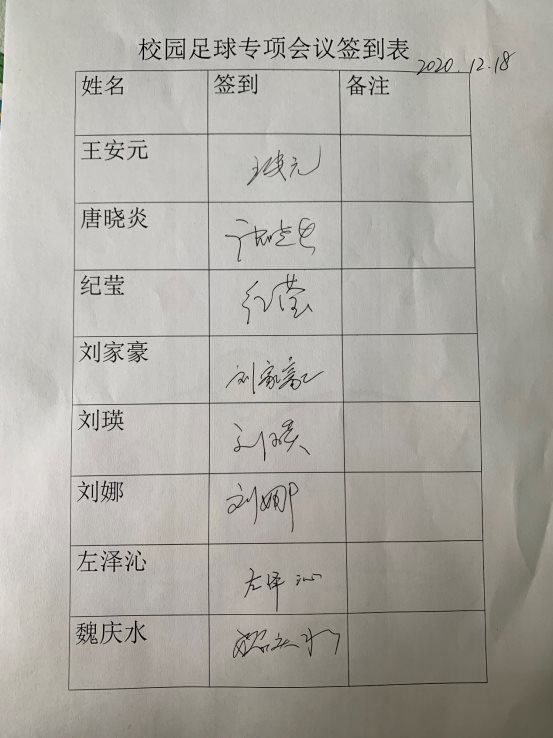 校园足球专项会议签到表
2020.12.18
姓名 签到 备注
王安元 王安元
唐晓炎
纪莹 纪莹
刘家豪 刘家豪
刘瑛 刘瑛
刘娜 刘娜
左泽沁 左泽沁
魏庆水 魏庆水